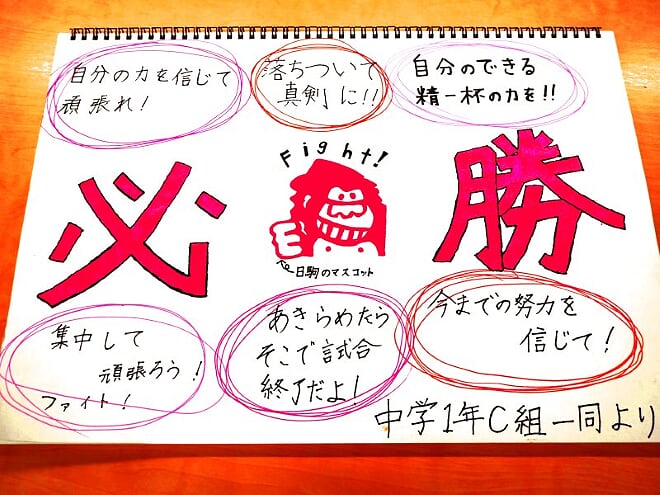 自分の力を信じて
頑張れ!
落ちついて
真剣に!!
自分のできる
精一杯の力を!!
Fight!
必勝
日駒のマスコット
集中して
頑張ろう!
ファイト!
あきらめたら
そこで試合
終了だよ!
今までの努力を
信じて!
中学1年C組一同より